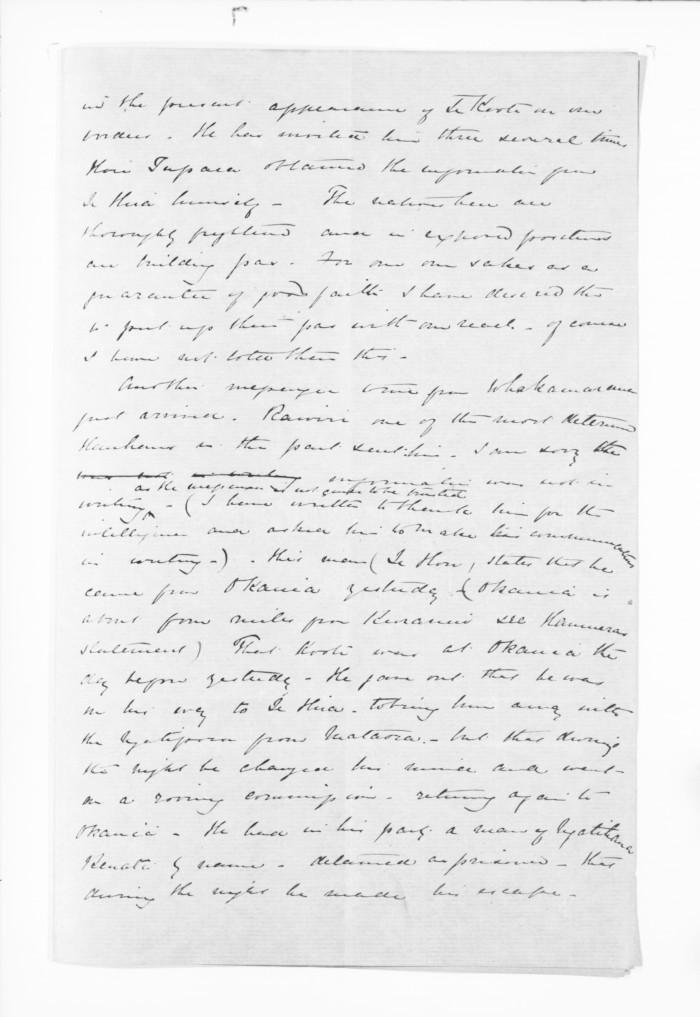 in the present appearance of Te Kooti on our
borders. He has invited him three several times
Hori Tupaea obtained the information from
Te Hira himself - The natives here are
thoroughly frightened and in exposed positions
are building pas. For our own sakes as a
guarantee of good faith I have desired them
to put up their pas with our reach - of course
I have not told them this -
Another messenger came from Whakamarama
just arrived. Rawiri one of the most determined
Hauhaus in the past sent him. I am sorry the
information was not in
as the messenger is not quite to be trusted
writing - (I have written to thank him for the
intelligence and asked him to make his communications
in writing -) - this man (Te Hori, states that he
came from Okauia yesterday - (Okauia is
about four miles from see
statement) That Kooti was at Okauia the
day before yesterday - He gave out that he was
on his way to Te Hira - to bring him away with
the Ngatiporou from Mataora - but that during
the night he changed his mind and went
on a roving commission - returning again to
Okauia - He had in his party a man of
Renata by name - detained as prisoner - that
during the night he made his escape -